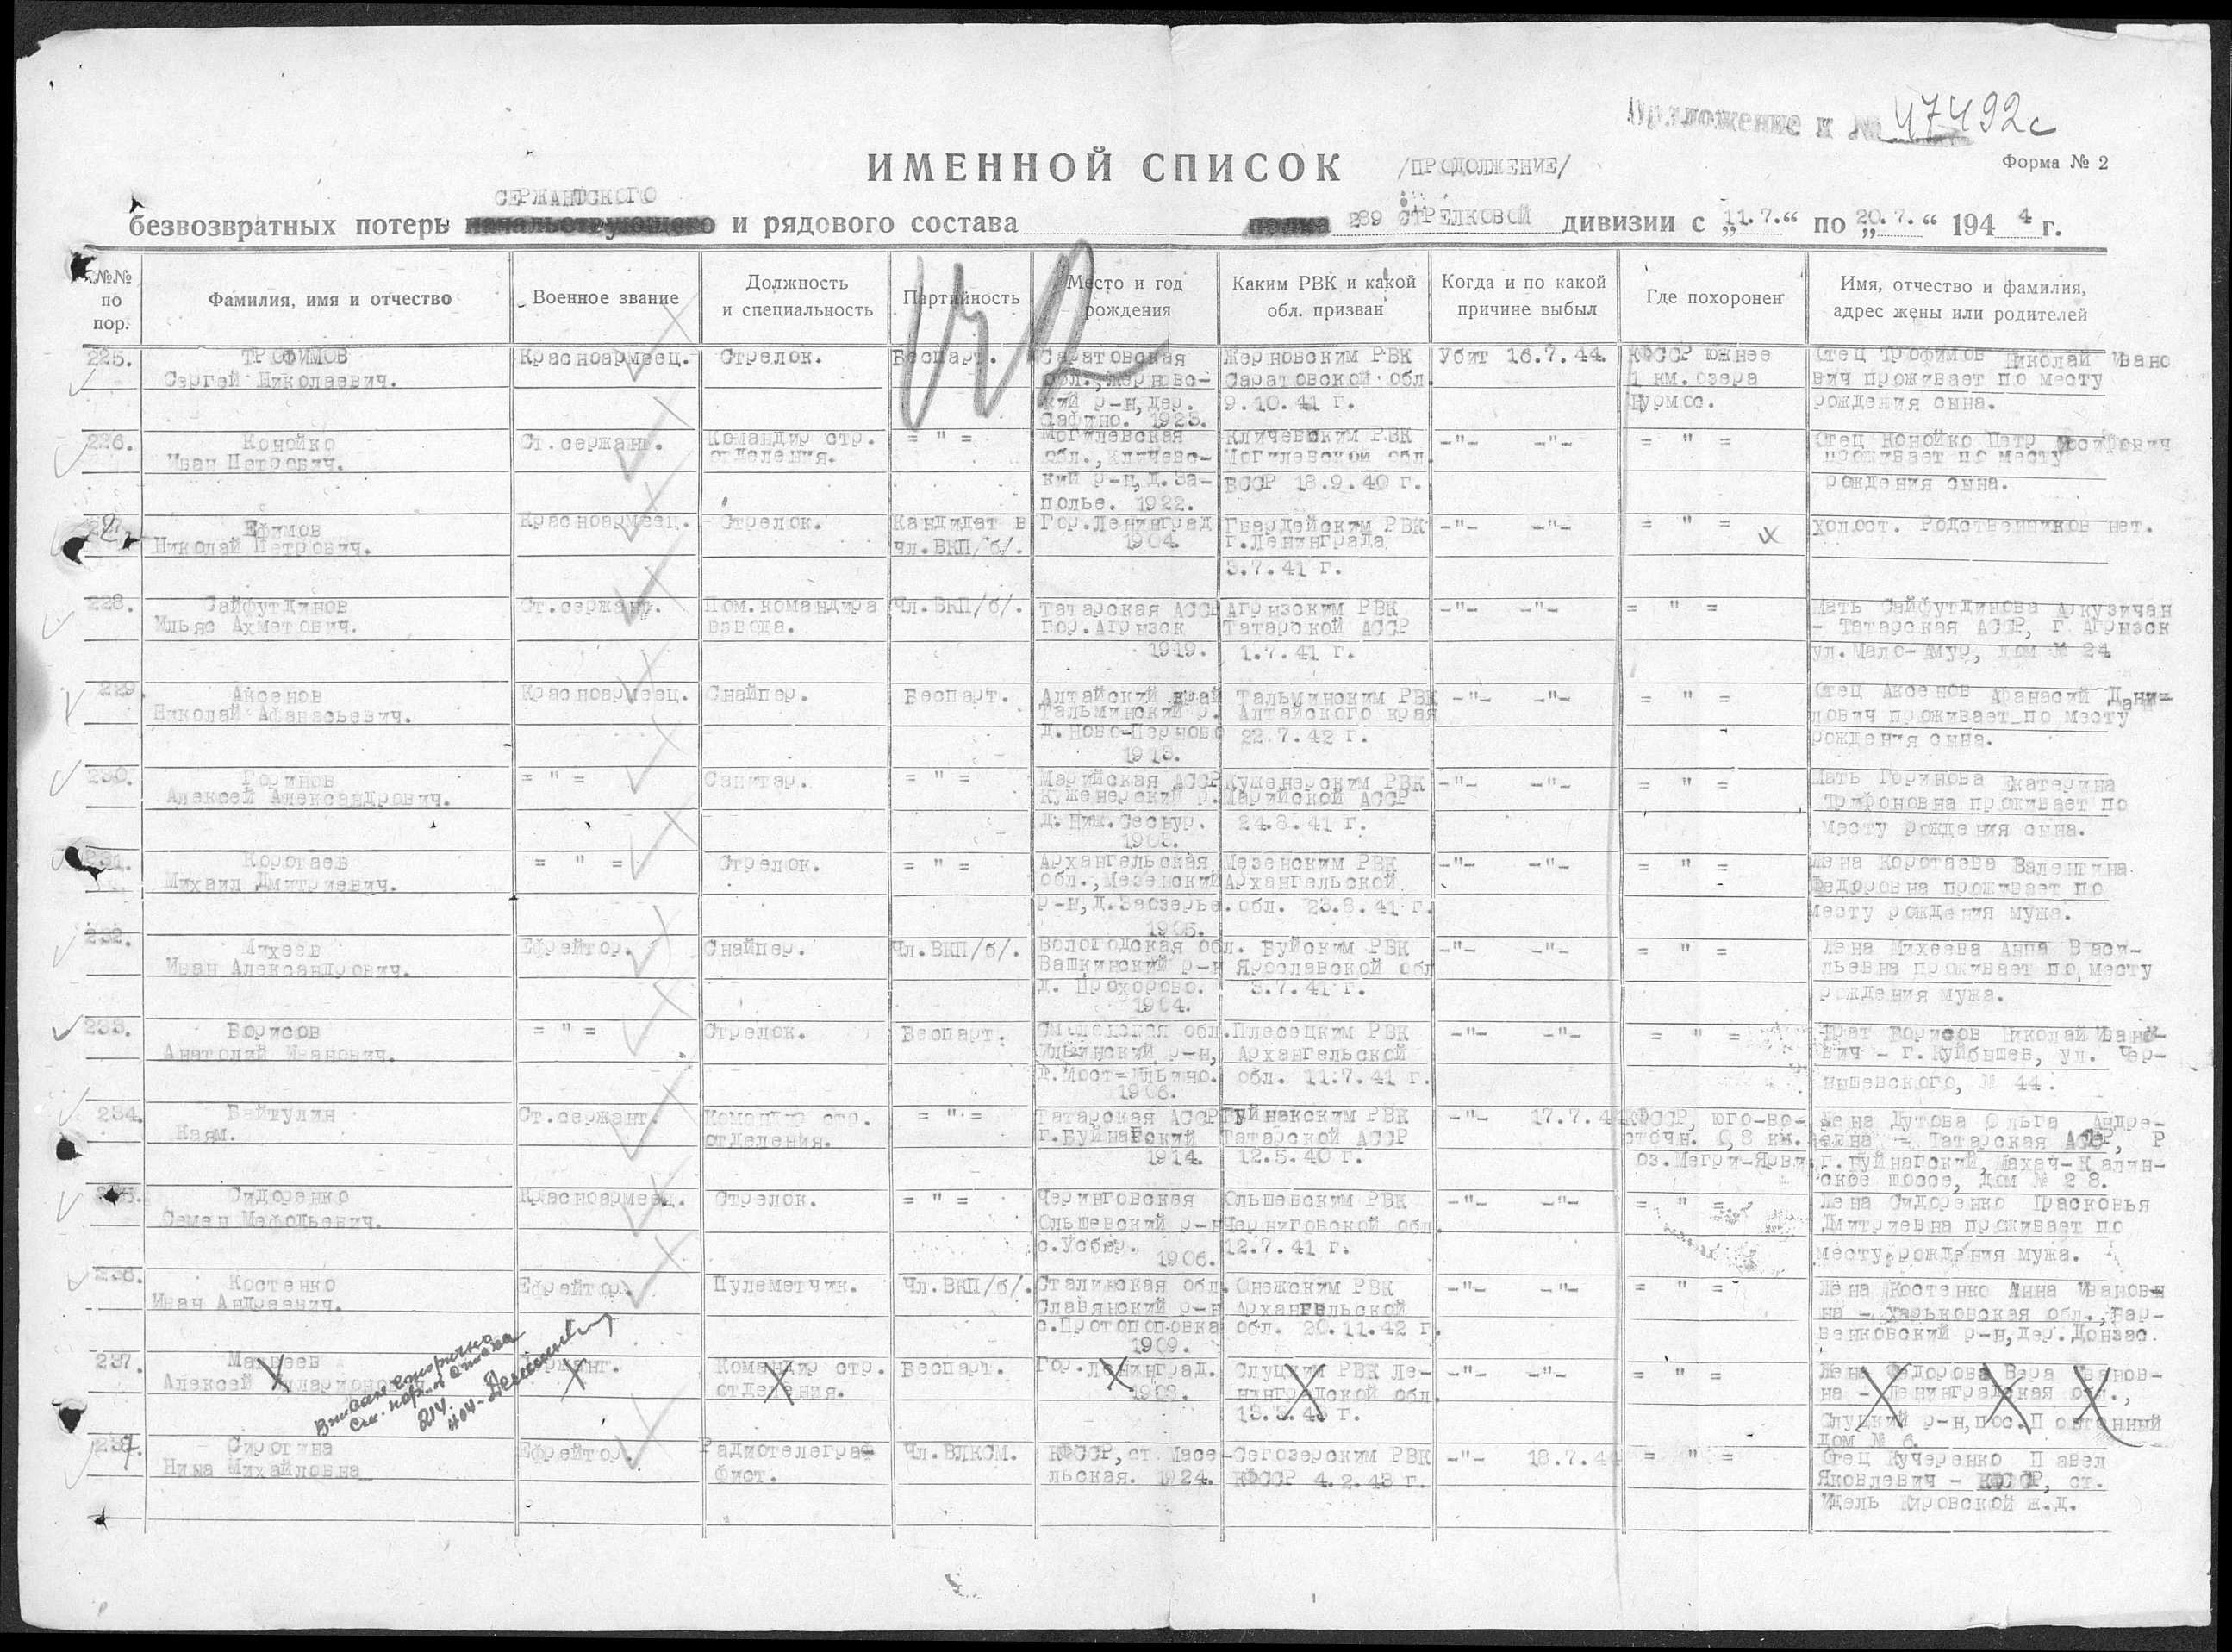 Приложение к № 47492с
ИМЕННОЙ СПИСОК /ПРОДОЛЖЕНИЕ/
Форма № 2
СЕРЖАНТСКОГО
безвозвратных потерь начальствующего и рядового состава полка 289 СТРЕЛКОВОЙ дивизии с „11.7.“ по „20.7.“ 1944 г.
№№ по пор. Фамилия, имя и отчество Военное звание Должность и специальность Партийность Место и год рождения Каким РВК и какой обл. призван Когда и по какой причине выбыл Где похоронен Имя, отчество и фамилия, адрес жены или родителей
225. ТРОФИМОВ Красноармеец. Стрелок. Беспарт. Саратовская Жерновским РВК Убит 16.7.44. КФССР южнее Отец Трофимов Николай Ивано
Сергей Николаевич. обл., Жерновс- Саратовской обл. 1 км. озера вич проживает по месту
кий р-н, дер. 9.10.41 г. Нурмос. рождения сына.
Сафино. 1923.
226. Конойко Ст.сержант. Командир стр. = " = Могилевская Кличевским РВК -"- -"- = " = Отец Конойко Петр Иосифович
Иван Петрович. отделения. обл., Кличевс- Могилевской обл. проживает по месту
кий р-н, д. За- БССР 18.9.40 г. рождения сына.
полье. 1922.
227. Ефимов Красноармеец. Стрелок. Кандидат в Гор.Ленинград Гвардейским РВК -"- -"- = " = холост. Родственников нет.
Николай Петрович. чл.ВКП/б/. 1904. г.Ленинграда
3.7.41 г.
228. Сайфутдинов Ст.сержант. Пом.командира Чл.ВКП/б/. Татарская АССР Агрызским РВК -"- -"- = " = Мать Сайфутдинова Аркузичан
Ильяс Ахметович. взвода. гор.Агрызск Татарской АССР - Татарская АССР, г. Агрызск
1919. 1.7.41 г. ул.Мало-Амур, дом № 24
229. Аксенов Красноармеец. Снайпер. Беспарт. Алтайский край Тальминским РВК -"- -"- = " = Отец Аксенов Афанасий Дани-
Николай Афанасьевич. Тальминский р. Алтайского края лович проживает по месту
д.Ново-Перуново 22.7.42 г. рождения сына.
1913.
230. Горинов = " = Санитар. = " = Марийская АССР Куженерским РВК -"- -"- = " = Мать Горинова Екатерина
Алексей Александрович. Куженерский р. Марийской АССР Трифоновна проживает по
д. Ниж.Сеснур. 24.8.41 г. месту рождения сына.
1905.
231. Коротаев = " = Стрелок. = " = Архангельская Мезенским РВК -"- -"- = " = Жена Коротаева Валентина
Михаил Дмитриевич. обл., Мезенский Архангельской Федоровна проживает по
р-н, д.Заозерье. обл. 23.8.41 г. месту рождения мужа.
1905.
232. Михеев Ефрейтор. Снайпер. Чл.ВКП/б/. Вологодская обл. Буйским РВК -"- -"- = " = Жена Михеева Анна Васи-
Иван Александрович. Вашкинский р-н Ярославской обл льевна проживает по месту
д. Прохорово. 3.7.41 г. рождения мужа.
1904.
233. Борисов = " = Стрелок. Беспарт. Смоленская обл. Плесецким РВК -"- -"- = " = Брат Борисов Николай Ивано-
Анатолий Иванович. Ильинский р-н, Архангельской вич - г. Куйбышев, ул. Чер-
д.Мост-Ильино. обл. 11.7.41 г. нышевского, № 44.
1906.
234. Байтулин Ст.сержант. Командир стр. = " = Татарская АССР Буйнакским РВК -"- 17.7.44 КФССР, юго-во- Жена Дутова Ольга Андре-
Каям. отделения. г.Буйнакский Татарской АССР сточн. 0,8 км. евна - Татарская АССР, Р
1914. 12.5.40 г. оз.Мегри-Ярви. г.Буйнагский, Махач-Калин-
ское шоссе, дом № 28.
235. Сидоренко Красноармеец. Стрелок. = " = Черниговская Ольшевским РВК -"- -"- = " = Жена Сидоренко Прасковья
Семен Мефодьевич. Ольшевский р-н Черниговской обл. Дмитриевна проживает по
с.Усбер. 1906. 12.7.41 г. месту рождения мужа.
236. Костенко Ефрейтор. Пулеметчик. Чл.ВКП/б/. Сталинская обл. Онежским РВК -"- -"- = " = Жена Костенко Анна Иванов-
Иван Андреевич. Славянский р-н Архангельской на - Харьковская обл., Бар-
с.Протопоповка обл. 20.11.42 г. венковский р-н, дер.Донзас.
1909.
237. Матвеев Сержант. Командир стр. Беспарт. Гор.Ленинград. Слуцким РВК Ле- -"- -"- = " = Жена Федорова Вера Иванов-
Алексей Илларионович. отделения. 1908. нинградской обл. на - Ленинградская обл.,
13.3.43 г. Слуцкий р-н, пос.Понтонный
Дом № 6.
Вписан вторично
см. пор. № списка
214.
237. Сиротина Ефрейтор. Радиотелеграф Чл.ВЛКСМ. КФССР, ст. Масе- Сегозерским РВК -"- 18.7.44 = " = Отец Кучеренко Павел
Нина Михайловна фист. льская. 1924. КФССР 4.2.43 г. Яковлевич - КФССР, ст.
Идель Кировской ж.д.